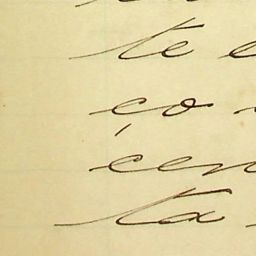 te e
ço
cen
ta